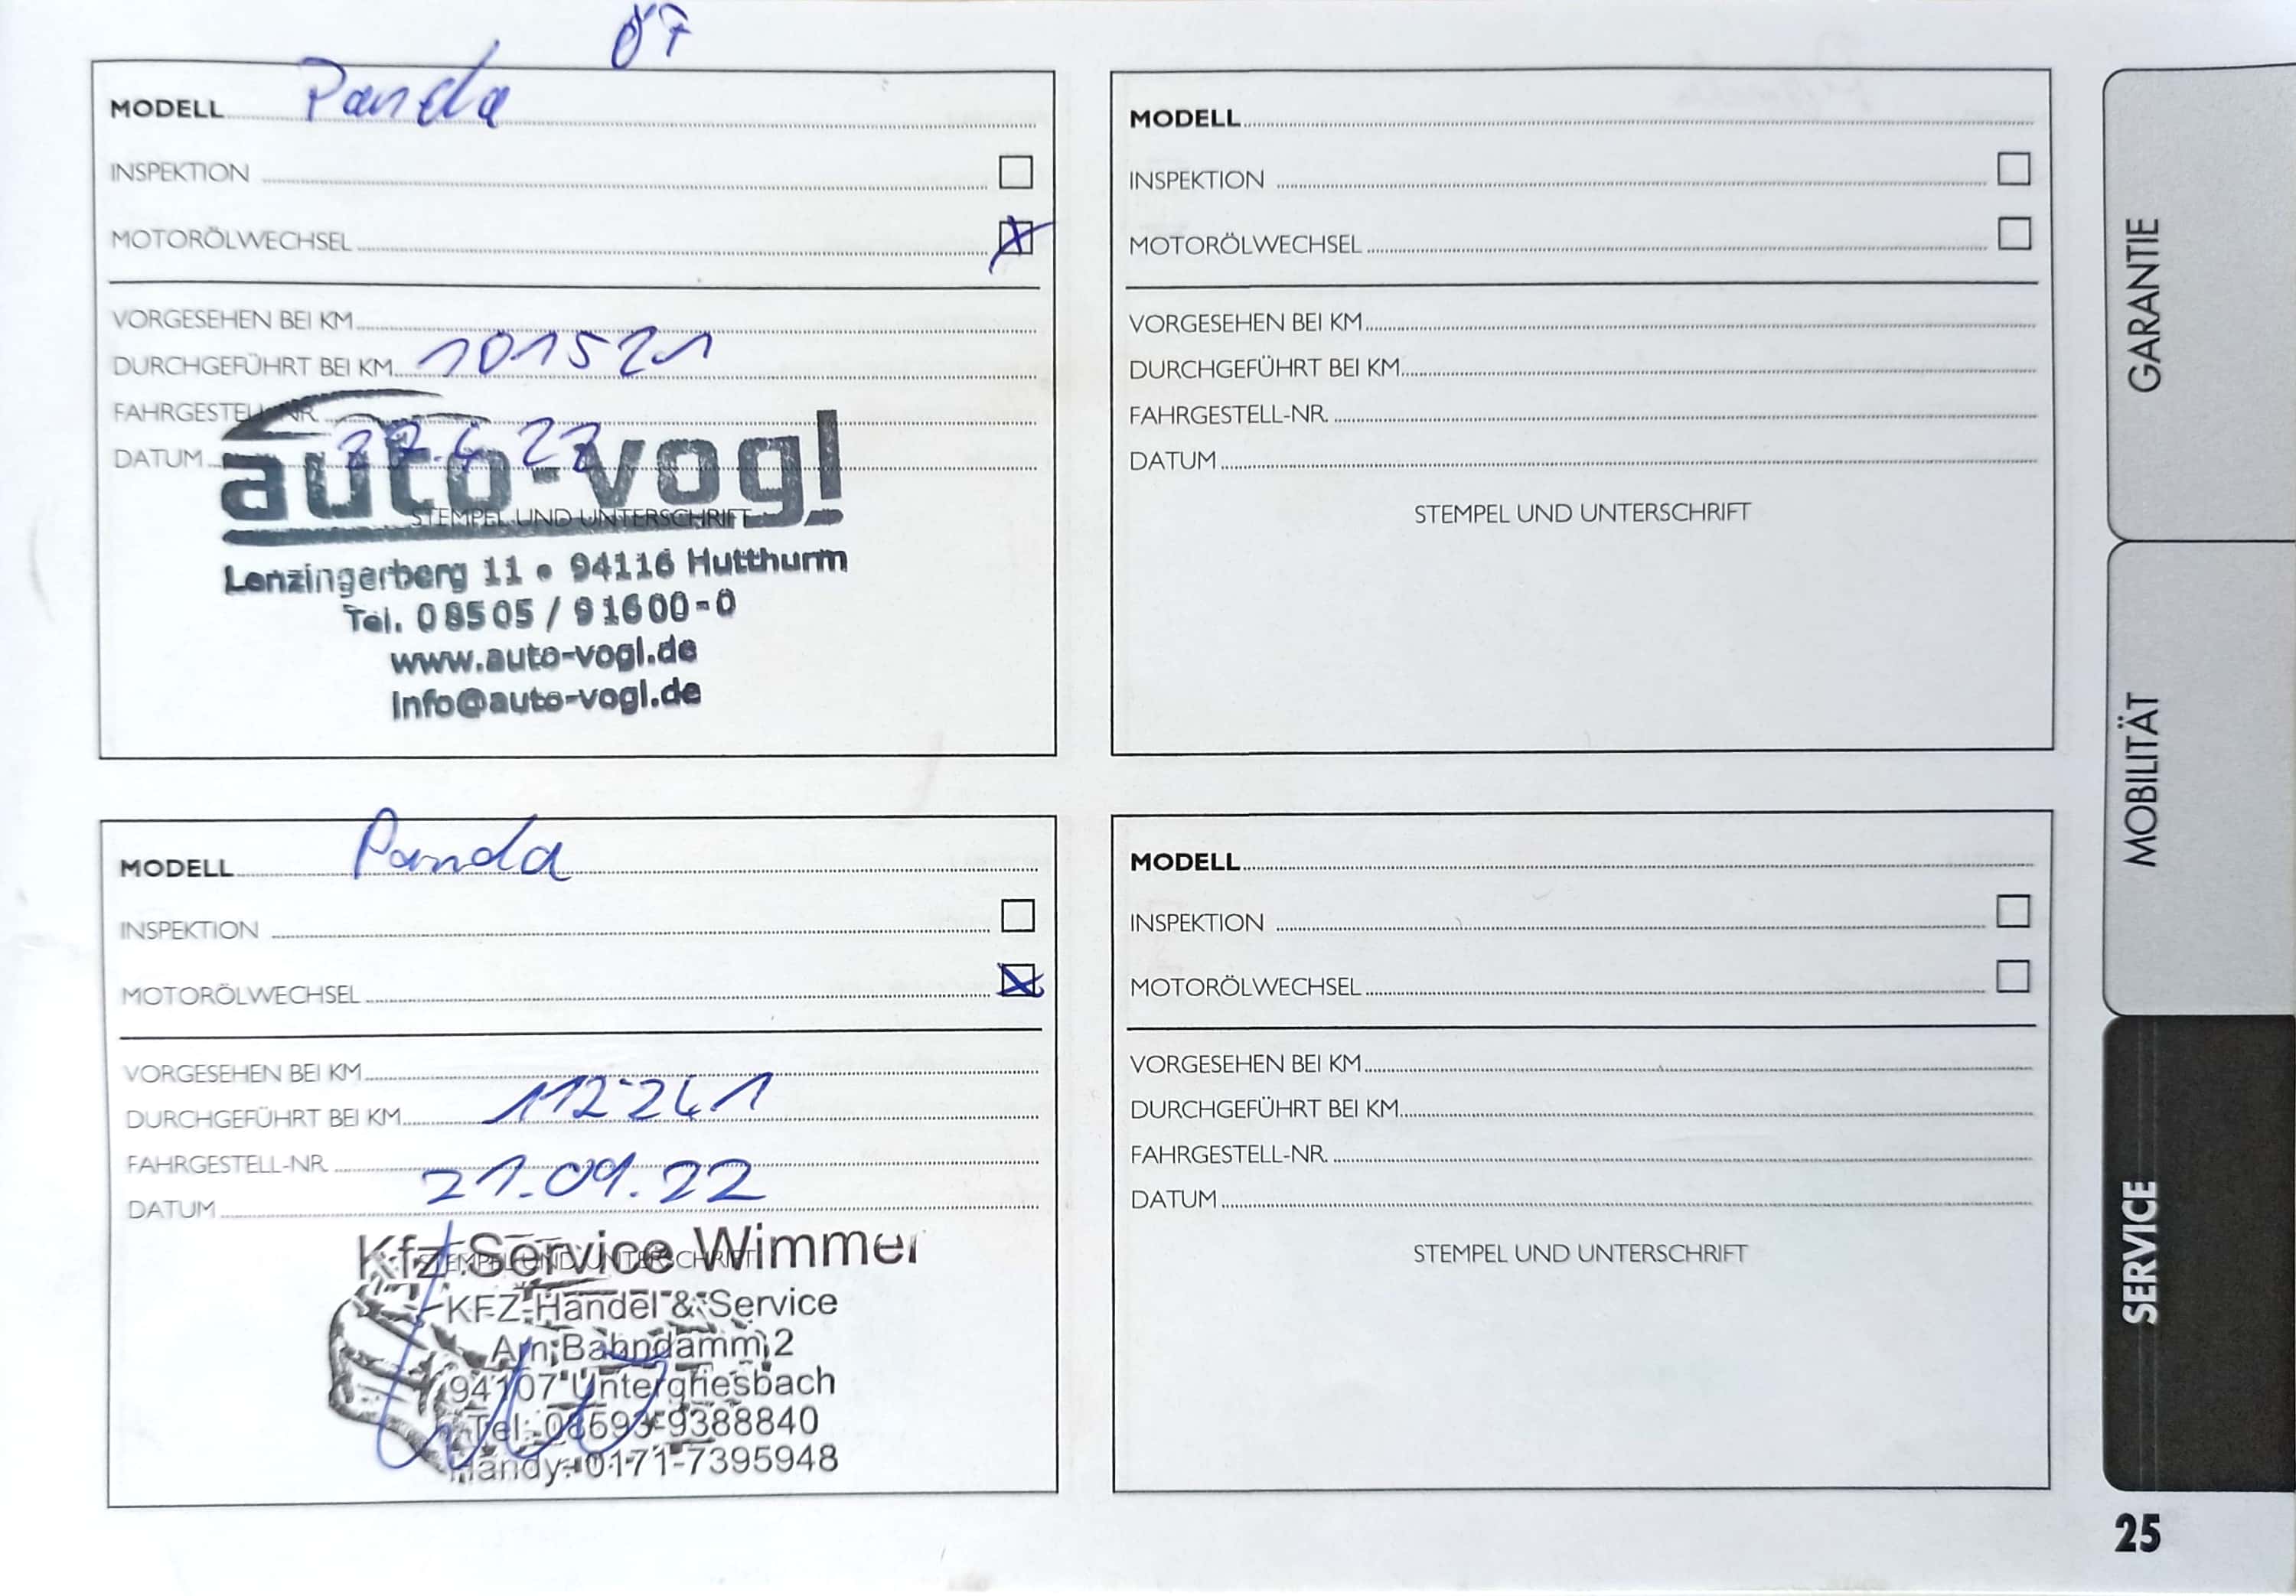 MODELL Panda
INSPEKTION
MOTORÖLWECHSEL X
VORGESEHEN BEI KM
DURCHGEFÜHRT BEI KM 101521
FAHRGESTELL-NR.
DATUM
auto-vogl
STEMPEL UND UNTERSCHRIFT
Lenzingerberg 11 • 94116 Hutthurm
Tel. 08505 / 91600-0
www.auto-vogl.de
info@auto-vogl.de
MODELL
INSPEKTION
MOTORÖLWECHSEL
VORGESEHEN BEI KM
DURCHGEFÜHRT BEI KM
FAHRGESTELL-NR.
DATUM
STEMPEL UND UNTERSCHRIFT
MODELL Panda
INSPEKTION
MOTORÖLWECHSEL X
VORGESEHEN BEI KM
DURCHGEFÜHRT BEI KM 112241
FAHRGESTELL-NR.
DATUM 21.09.22
STEMPEL UND UNTERSCHRIFT
Kfz-Service Wimmer
KFZ-Handel & Service
Am Bahndamm 2
94107 Untergriesbach
Tel. 08593-9388840
Handy: 0171-7395948
MODELL
INSPEKTION
MOTORÖLWECHSEL
VORGESEHEN BEI KM
DURCHGEFÜHRT BEI KM
FAHRGESTELL-NR.
DATUM
STEMPEL UND UNTERSCHRIFT
GARANTIE
MOBILITÄT
SERVICE
25